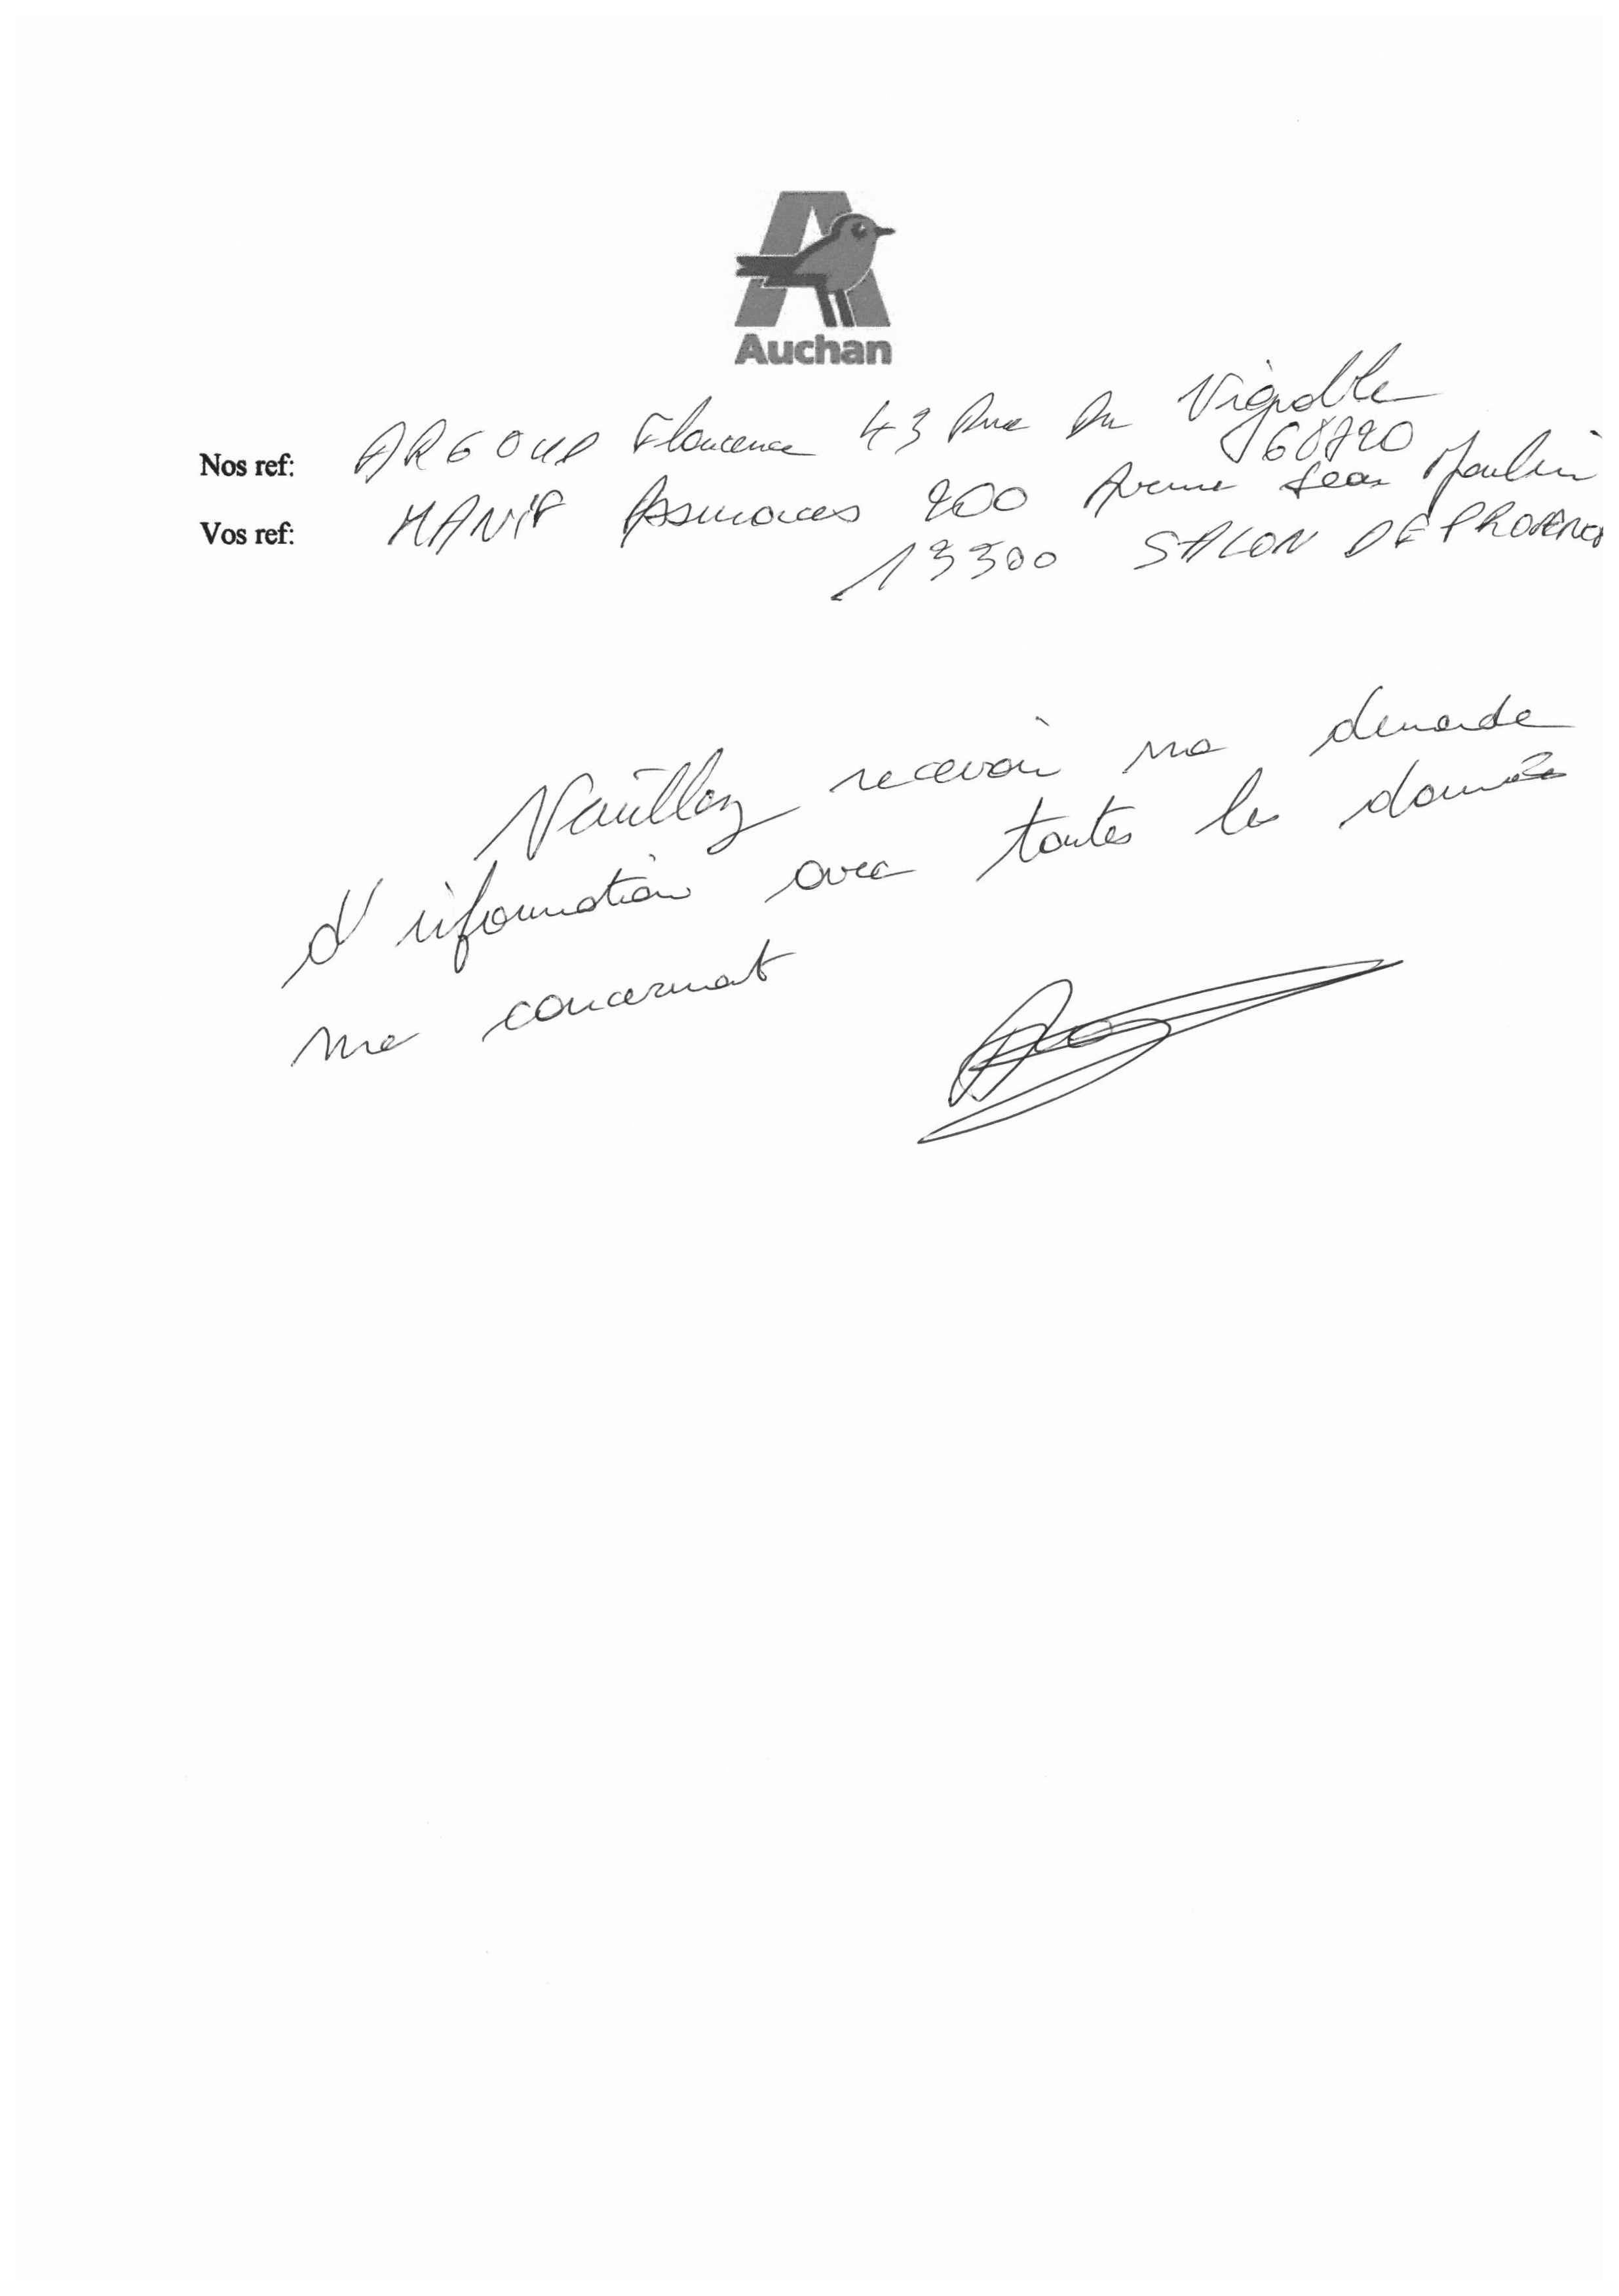 Auchan
Nos ref: ARGOUD Florence 43 Rue Du Vignoble
68720
Vos ref: MANIF Assurances 200 Avenue Jean Moulin
13300 SALON DE PROVENCE
Veuillez recevoir ma demande
d'information avec toutes les données
me concernant